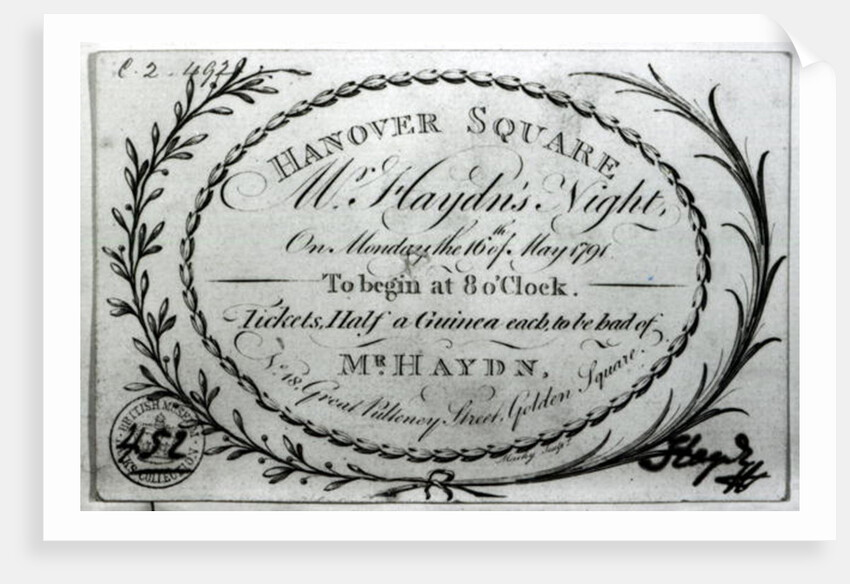 C. 2 - 492
HANOVER SQUARE
Mr. Haydn's Night,
On Monday the 16th of May 1791
To begin at 8 o'Clock.
Tickets, Half a Guinea each, to be had of
MR. HAYDN,
No. 18, Great Pulteney Street, Golden Square.
BRITISH MUSEUM
452
BANKS COLLECTION